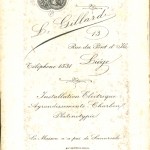 L. Gillard
13
Rue du Pont d'Ile
Liège
Téléphone 1831
Installation Electrique
Agrandissements Charbon
Platinotype
La Maison n'a pas de Succursale